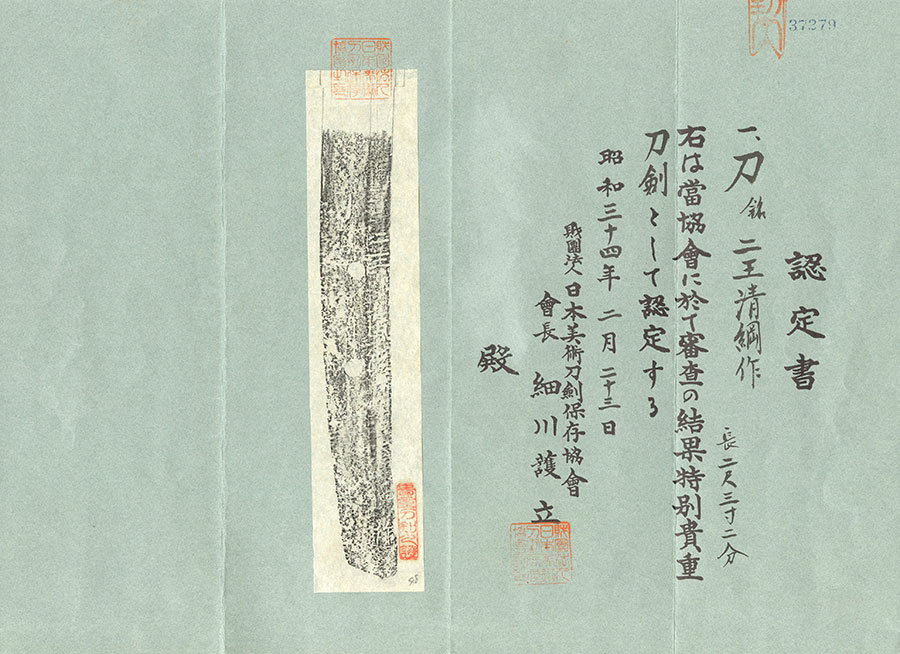 37279
認定書
一、刀 銘 二王清綱作 長二尺三寸二分
右は當協會に於て審査の結果特別貴重
刀劍として認定する
昭和三十四年二月二十三日
財團法人日本美術刀劍保存協會
會長 細川護立
殿